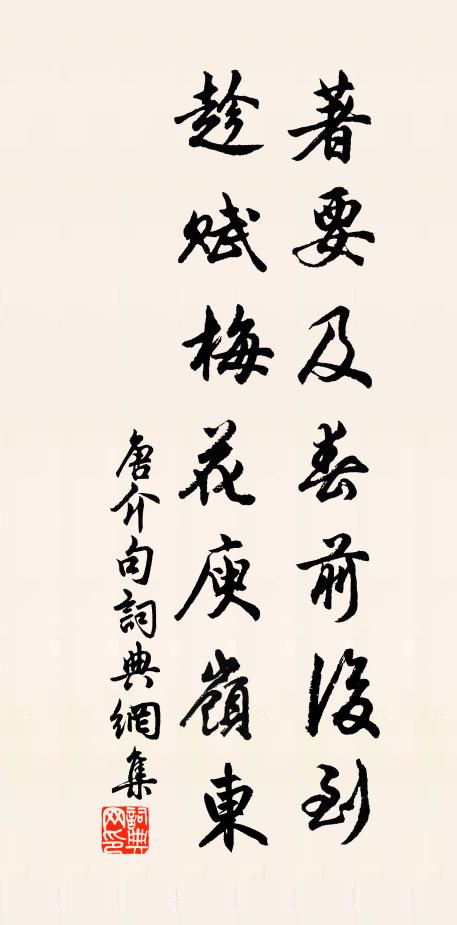 著要及春前後到
趁賦梅花庾嶺東
唐介句詞典網集
詞典网印